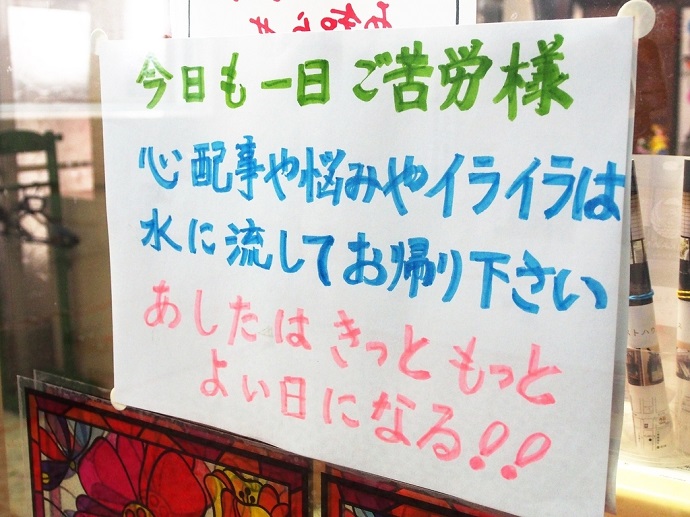 お知らせ
今日も一日ご苦労様
心配事や悩みやイライラは
水に流してお帰り下さい
あしたはきっともっと
よい日になる!!